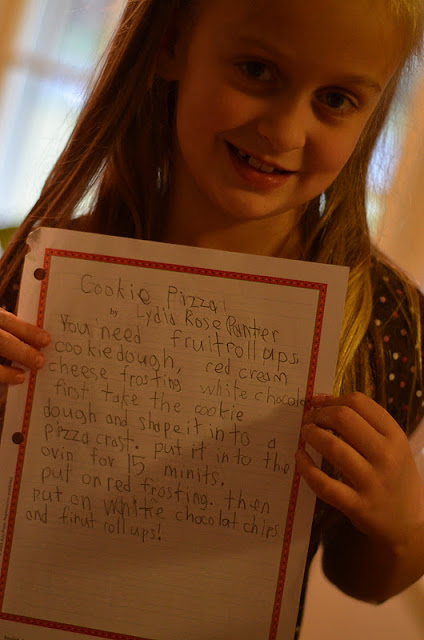 Cookie Pizza!
by Lydia Rose Ranter
You need fruitroll ups
cookie dough, red cream
cheese frosting white chocolate
first take the cookie
dough and shape it in to a
pizza crast. put it into the
ovin for 15 minits.
put on red frosting. then
put on white chocolat chips
and firut roll ups!